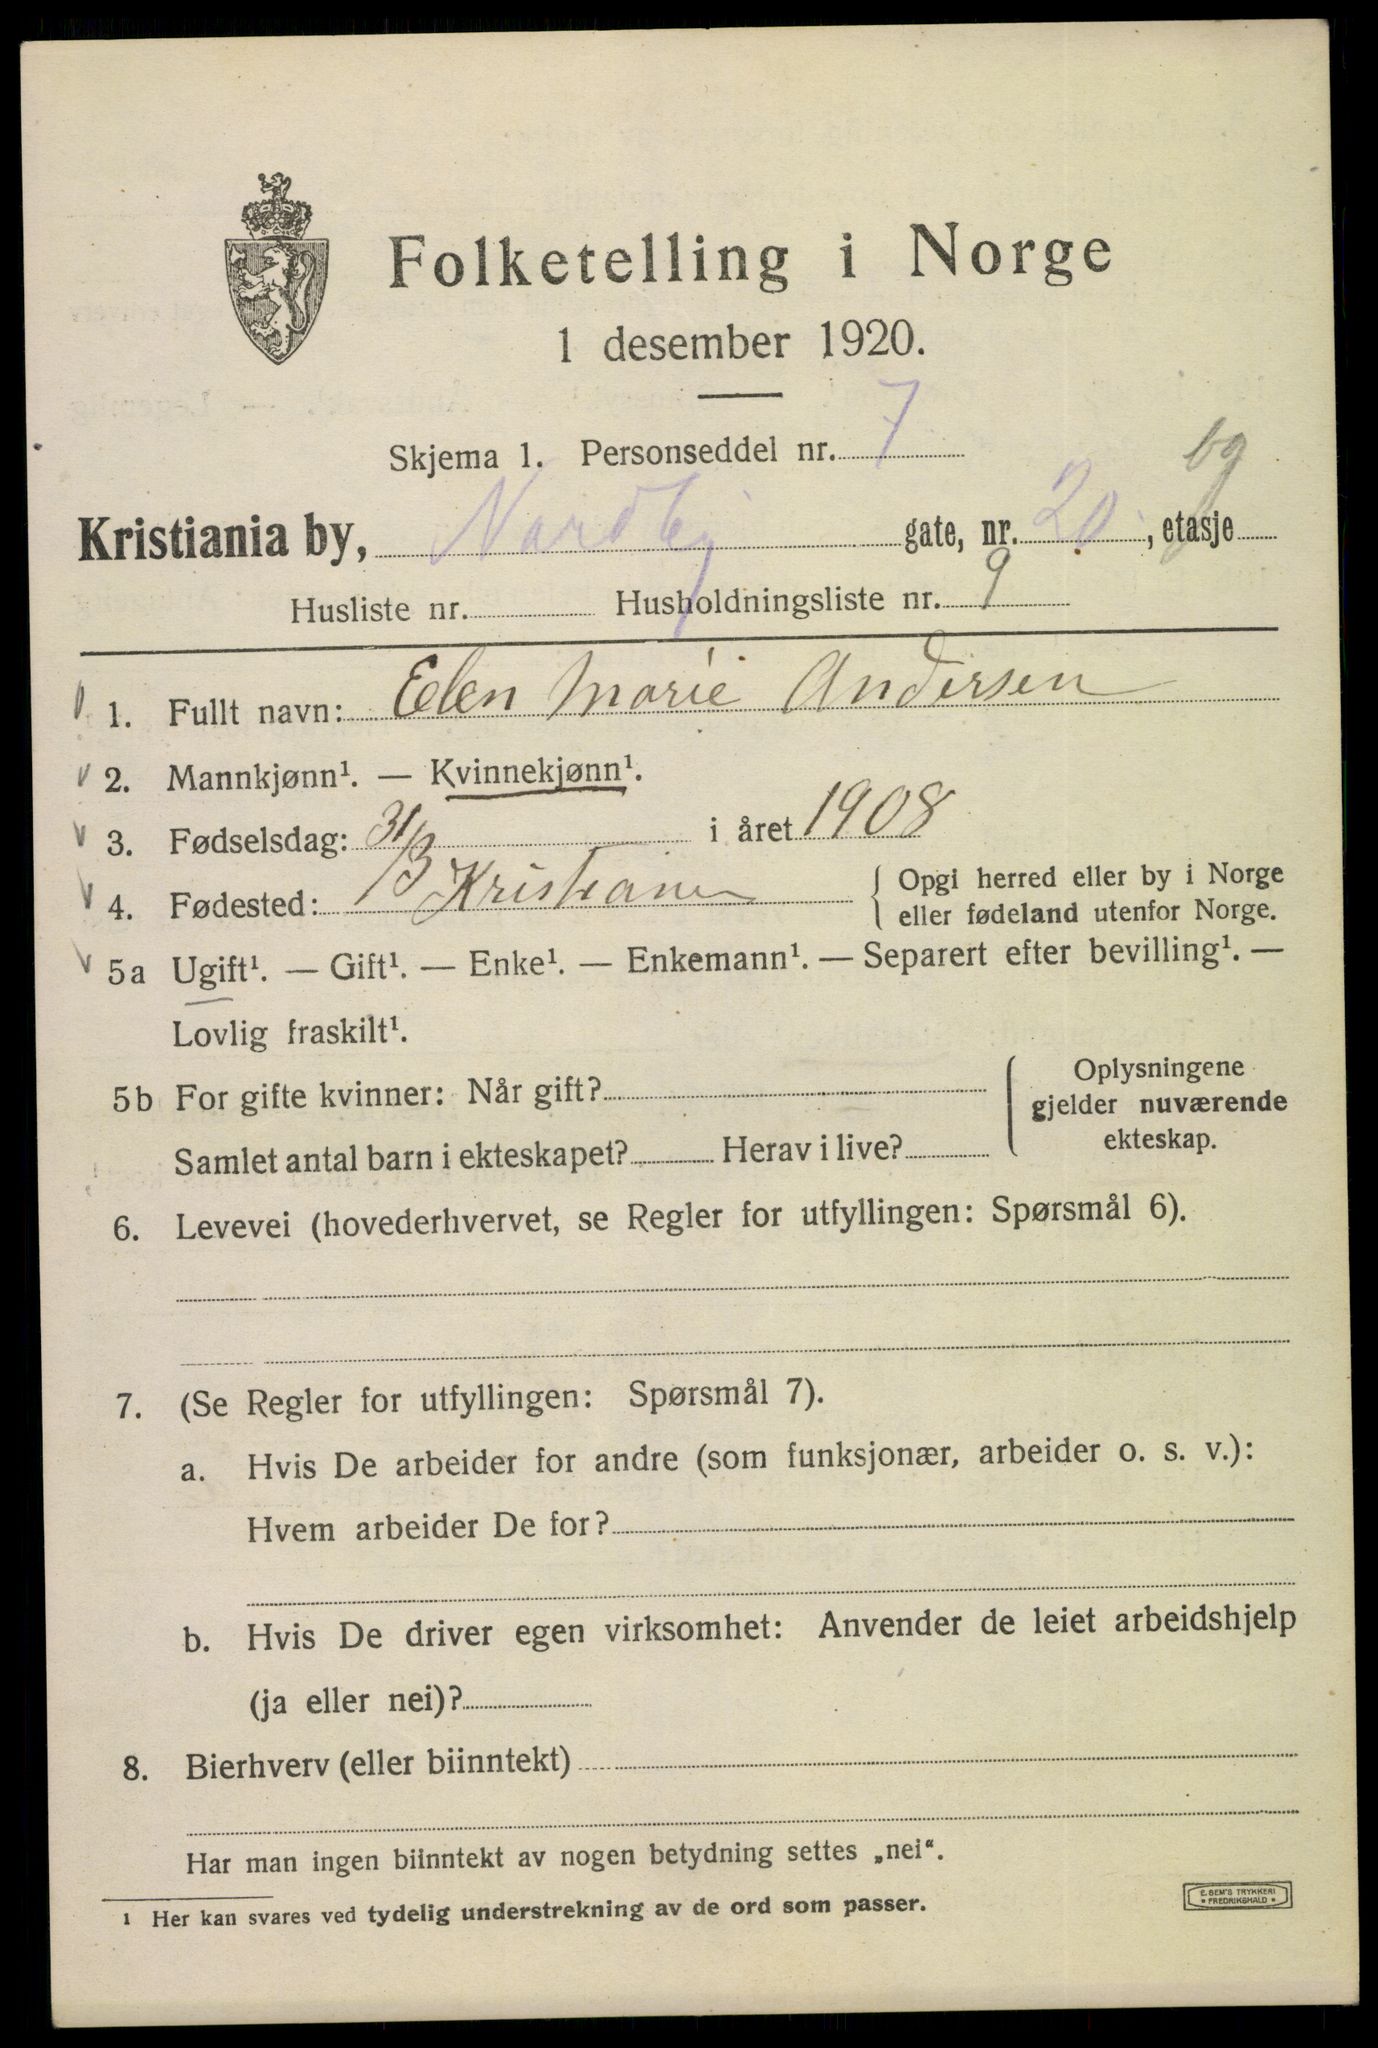 Folketelling i Norge
1 desember 1920.
Skjema 1. Personseddel nr. 7
bg
Kristiania by, Nordby gate, nr. 20, etasje
Husliste nr. Husholdningsliste nr. 9
1. Fullt navn: Elen Marie Andersen
2. Mannkjønn¹. — Kvinnekjønn¹.
3. Fødselsdag: 31/3 i året 1908
4. Fødested: Kristiania { Opgi herred eller by i Norge
eller fødeland utenfor Norge.
5a Ugift¹. — Gift¹. — Enke¹. — Enkemann¹. — Separert efter bevilling¹. —
Lovlig fraskilt¹.
5b For gifte kvinner: Når gift? { Oplysningene
gjelder nuværende
Samlet antal barn i ekteskapet? Herav i live? ekteskap.
6. Levevei (hovederhvervet, se Regler for utfyllingen: Spørsmål 6).
7. (Se Regler for utfyllingen: Spørsmål 7).
a. Hvis De arbeider for andre (som funksjonær, arbeider o. s. v.):
Hvem arbeider De for?
b. Hvis De driver egen virksomhet: Anvender de leiet arbeidshjelp
(ja eller nei)?
8. Bierhverv (eller biinntekt)
Har man ingen biinntekt av nogen betydning settes „nei“.
1 Her kan svares ved tydelig understrekning av de ord som passer.
E. SEM'S TRYKKERI
FREDRIKSHALD